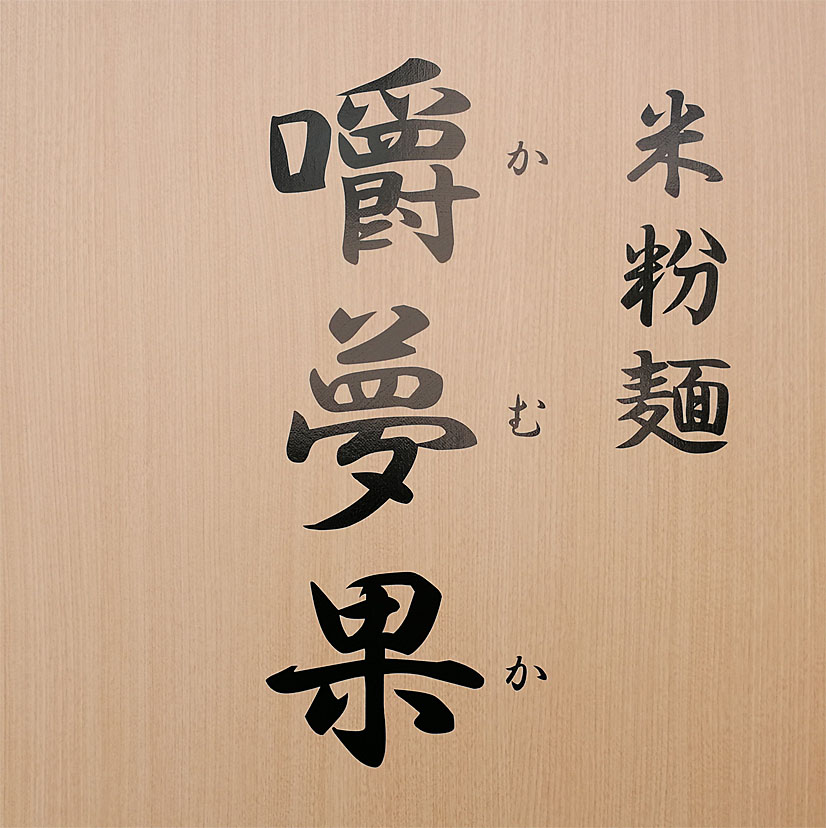 米粉麺
嚼夢果
かむか